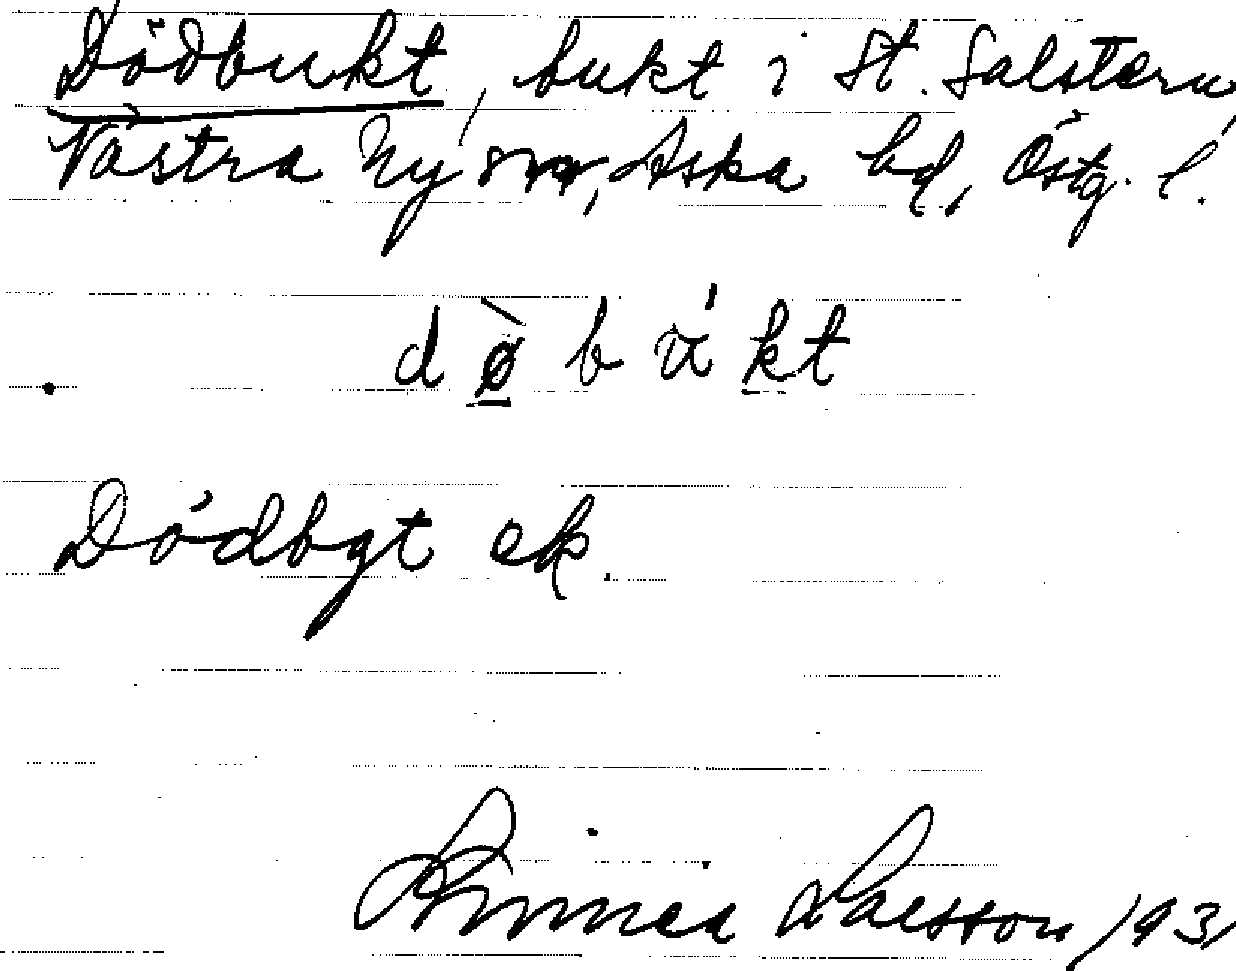 Dödbukt, bukt i St. Salstern,
Västra Ny sn, Aska hd, Östg. l.
Dödbgt ek.
Linnea Larsson 1931